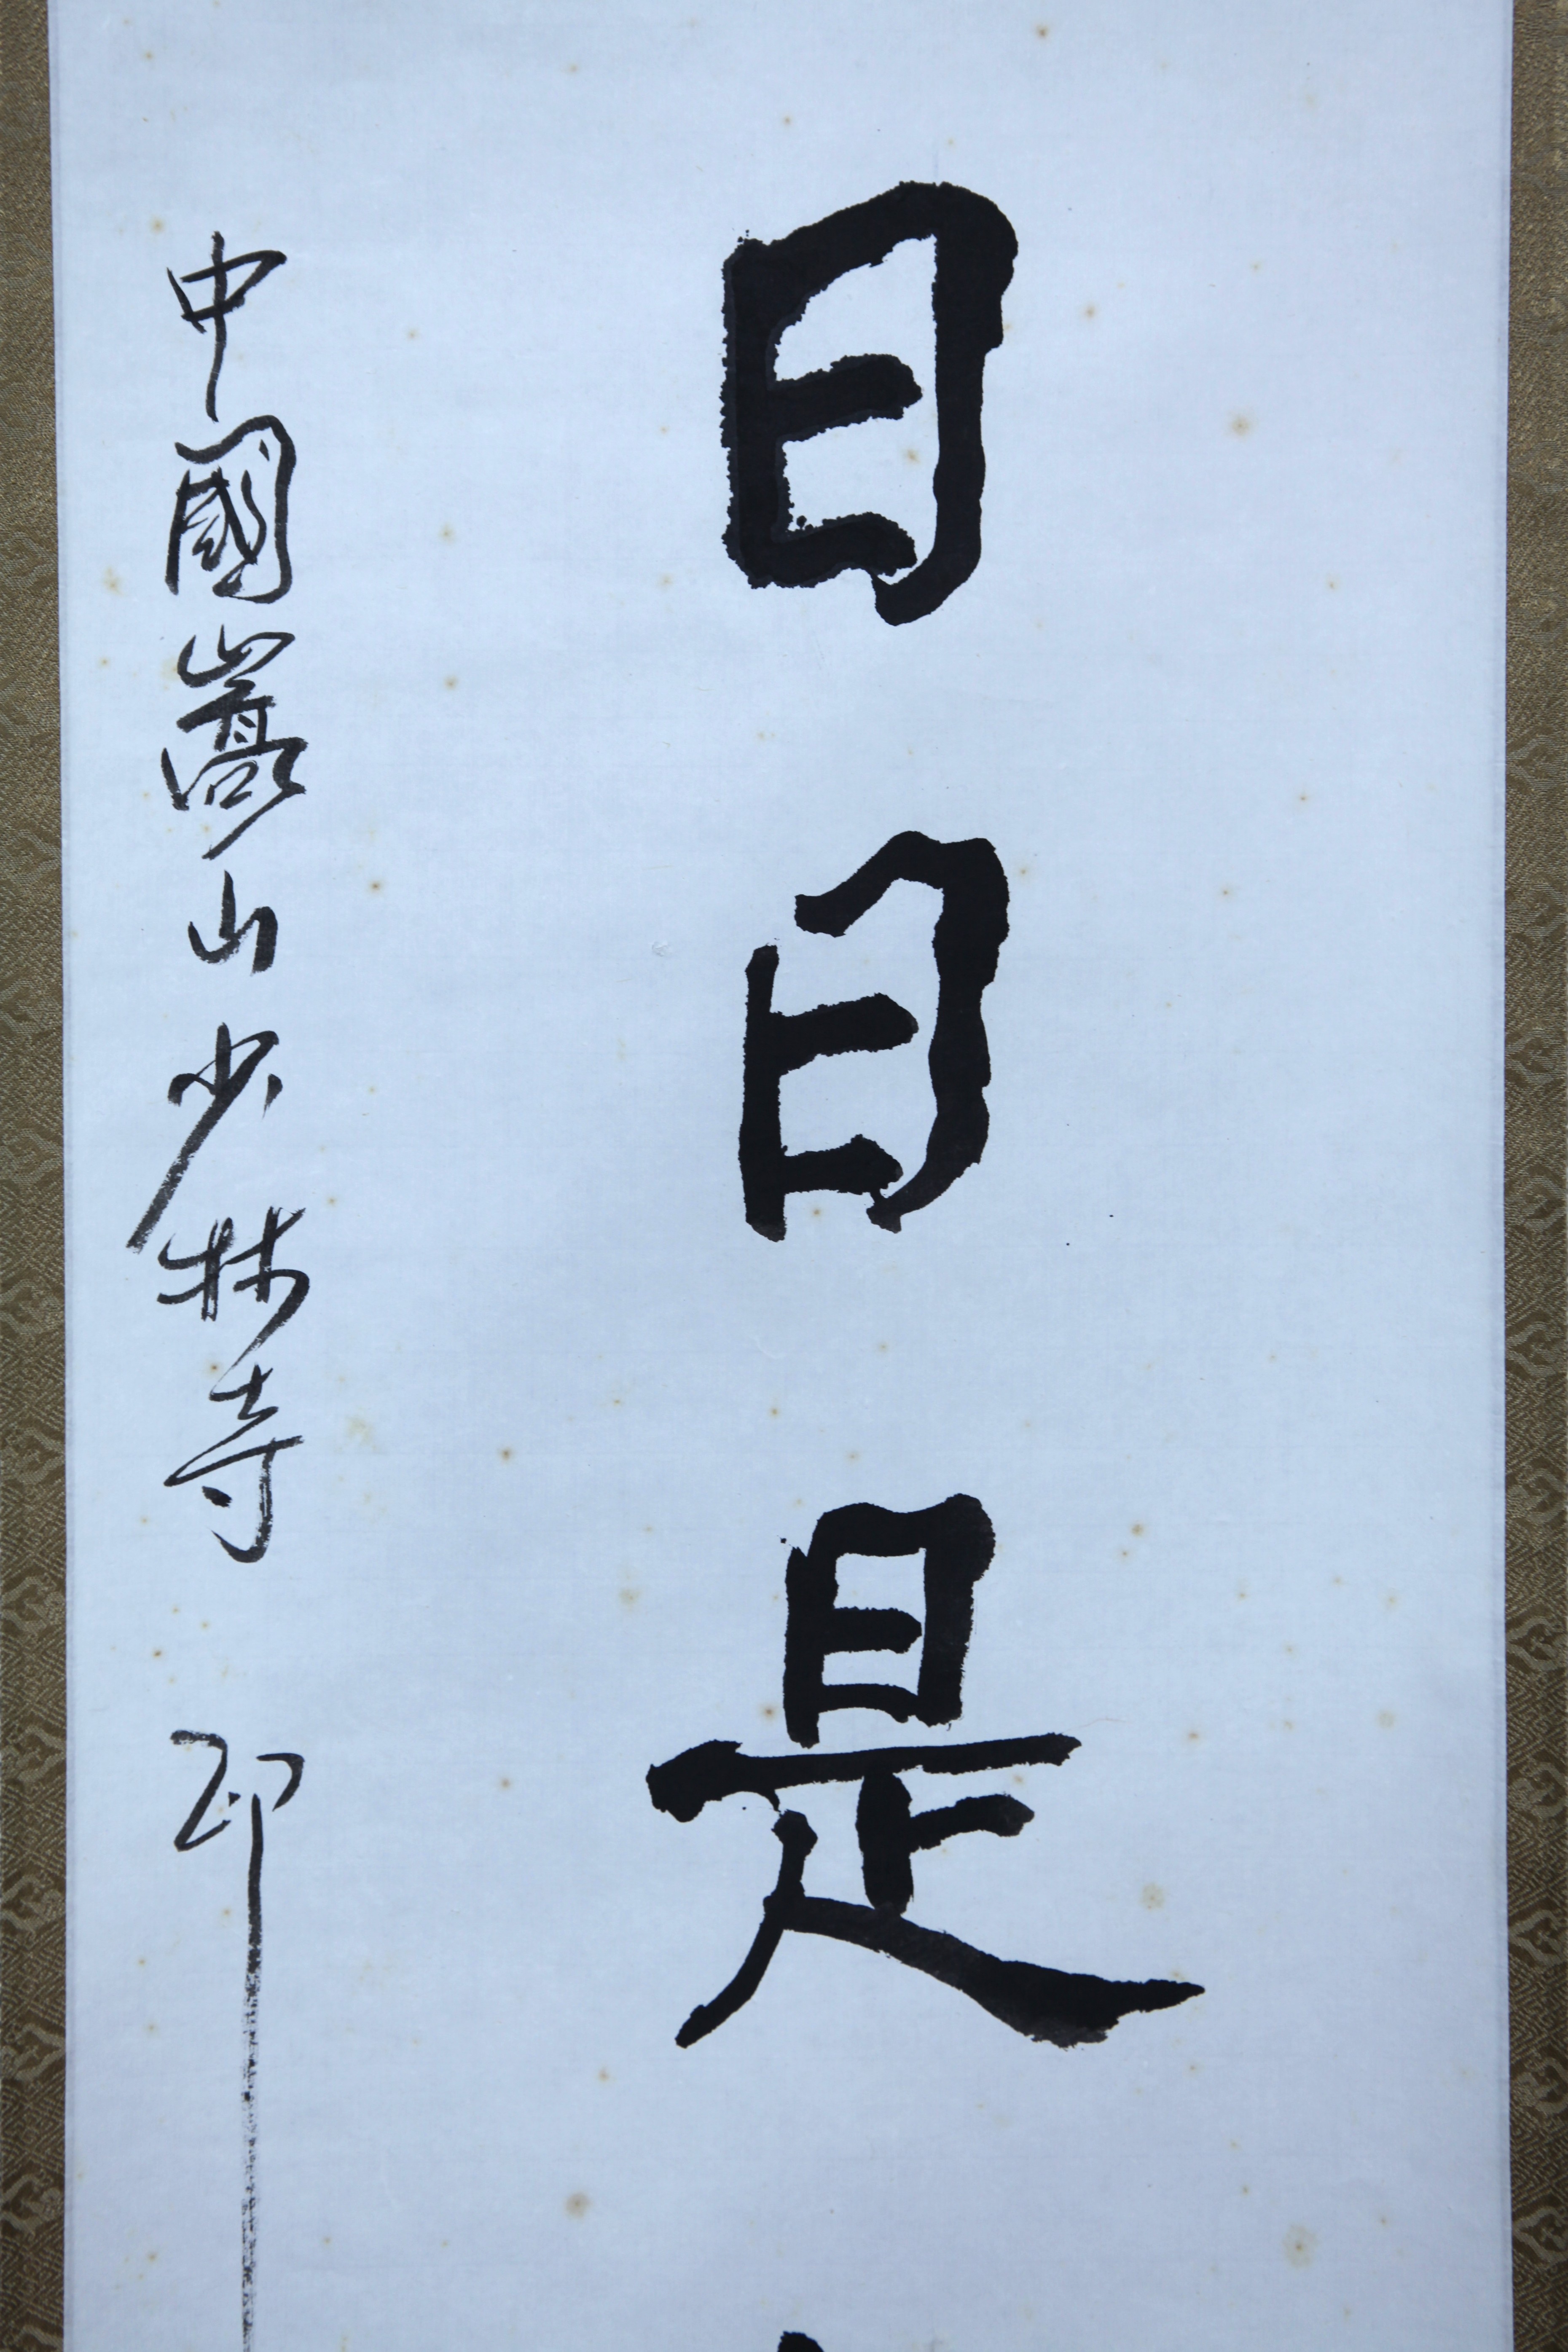 日日是
中國嵩山少林寺 印